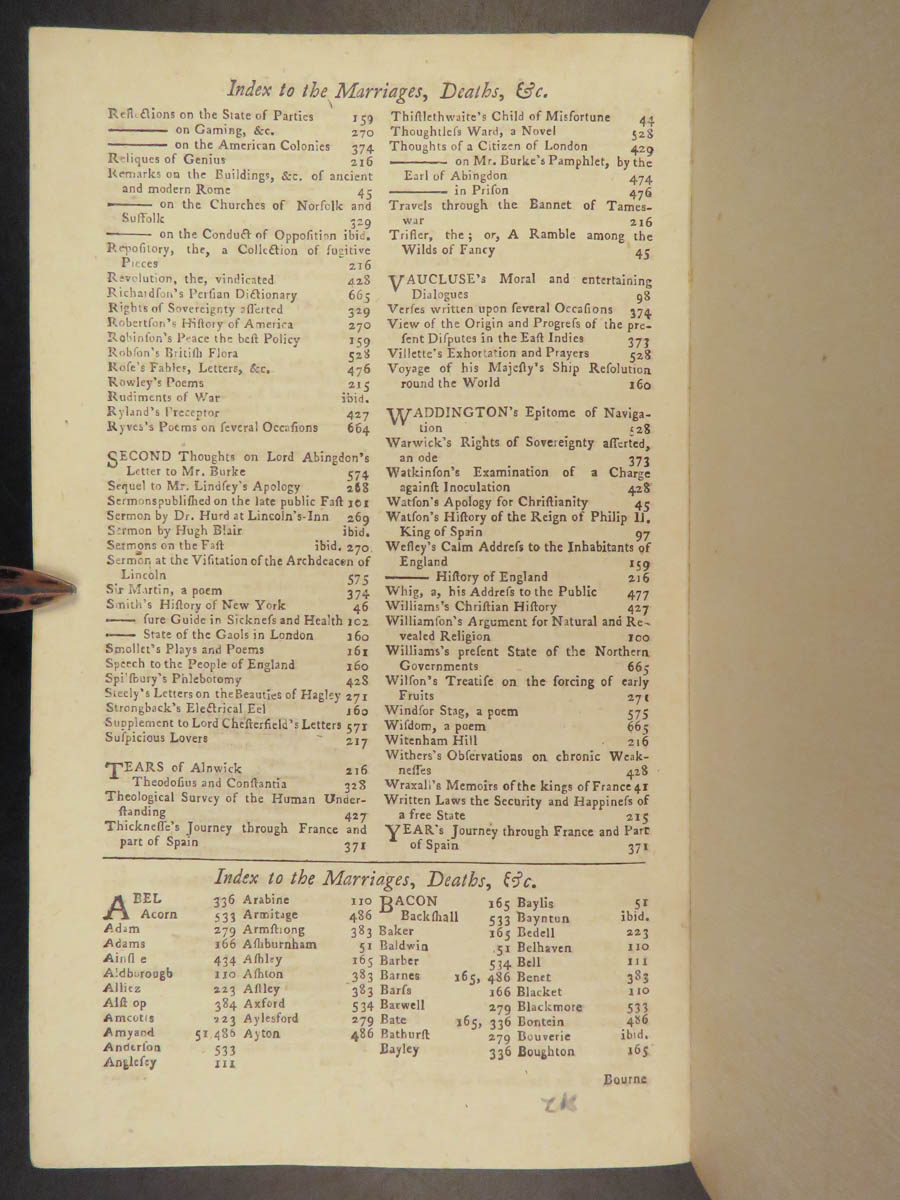 Index to the Marriages, Deaths, &c.
Reflections on the State of Parties 159
——— on Gaming, &c. 270
——— on the American Colonies 374
Reliques of Genius 216
Remarks on the Buildings, &c. of ancient
and modern Rome 45
——— on the Churches of Norfolk and
Suffolk 329
——— on the Conduct of Oppofition ibid.
Repofitory, the, a Collection of fugitive
Pieces 216
Revolution, the, vindicated 428
Richardfon's Perfian Dictionary 665
Rights of Sovereignty afferted 329
Robertfon's Hiftory of America 270
Robinfon's Peace the beft Policy 159
Robfon's Britifh Flora 528
Rofe's Fables, Letters, &c. 476
Rowley's Poems 215
Rudiments of War ibid.
Ryland's Preceptor 427
Ryves's Poems on feveral Occafions 664
SECOND Thoughts on Lord Abingdon's
Letter to Mr. Burke 574
Sequel to Mr. Lindfey's Apology 268
Sermons publifhed on the late public Faft 101
Sermon by Dr. Hurd at Lincoln's-Inn 269
Sermon by Hugh Blair ibid.
Sermons on the Faft ibid. 270
Sermon at the Vifitation of the Archdeacon of
Lincoln 575
Sir Martin, a poem 374
Smith's Hiftory of New York 46
—— fure Guide in Sicknefs and Health 102
—— State of the Gaols in London 160
Smollet's Plays and Poems 161
Speech to the People of England 160
Spilfbury's Phlebotomy 428
Steely's Letters on the Beauties of Hagley 271
Strongback's Electrical Eel 160
Supplement to Lord Chefterfield's Letters 571
Sufpicious Lovers 217
TEARS of Alnwick 216
Theodofius and Conftantia 328
Theological Survey of the Human Under-
ftanding 427
Thickneffe's Journey through France and
part of Spain 371
Thiftlethwaite's Child of Misfortune 44
Thoughtlefs Ward, a Novel 528
Thoughts of a Citizen of London 429
——— on Mr. Burke's Pamphlet, by the
Earl of Abingdon 474
——— in Prifon 476
Travels through the Bannet of Tames-
war 216
Trifler, the; or, A Ramble among the
Wilds of Fancy 45
VAUCLUSE's Moral and entertaining
Dialogues 98
Verfes written upon feveral Occafions 374
View of the Origin and Progrefs of the pre-
fent Difputes in the Eaft Indies 373
Villette's Exhortation and Prayers 528
Voyage of his Majefty's Ship Refolution
round the World 160
WADDINGTON's Epitome of Naviga-
tion 528
Warwick's Rights of Sovereignty afferted,
an ode 373
Watkinfon's Examination of a Charge
againft Inoculation 428
Watfon's Apology for Chriftianity 45
Watfon's Hiftory of the Reign of Philip II.
King of Spain 97
Wefley's Calm Addrefs to the Inhabitants of
England 159
——— Hiftory of England 216
Whig, a, his Addrefs to the Public 477
Williams's Chriftian Hiftory 427
Williamfon's Argument for Natural and Re-
vealed Religion 100
Williams's prefent State of the Northern
Governments 665
Wilfon's Treatife on the forcing of early
Fruits 271
Windfor Stag, a poem 575
Wifdom, a poem 665
Witenham Hill 216
Withers's Obfervations on chronic Weak-
neffes 428
Wraxall's Memoirs of the kings of France 41
Written Laws the Security and Happinefs of
a free State 215
YEAR's Journey through France and Part
of Spain 371
Index to the Marriages, Deaths, &c.
ABEL 336
Acorn 533
Adam 279
Adams 166
Ainfl e 434
Aldborough 110
Alliez 223
Alft op 384
Amcotts 223
Amyand 51. 486
Anderfon 533
Anglefey 111
Arabine 110
Armitage 486
Armftrong 383
Afhburnham 51
Afhley 165
Afhton 383
Aftley 383
Axford 534
Aylesford 279
Ayton 486
BACON 165
Backfhall 533
Baker 165
Baldwin 51
Barber 534
Barnes 165, 486
Barfs 166
Barwell 279
Bate 165, 336
Bathurft 279
Bayley 336
Baylis 51
Bayntun ibid.
Bedell 223
Belhaven 110
Bell 111
Benet 383
Blacket 110
Blackmore 533
Bontein 486
Bouverie ibid.
Boughton 165
Bourne